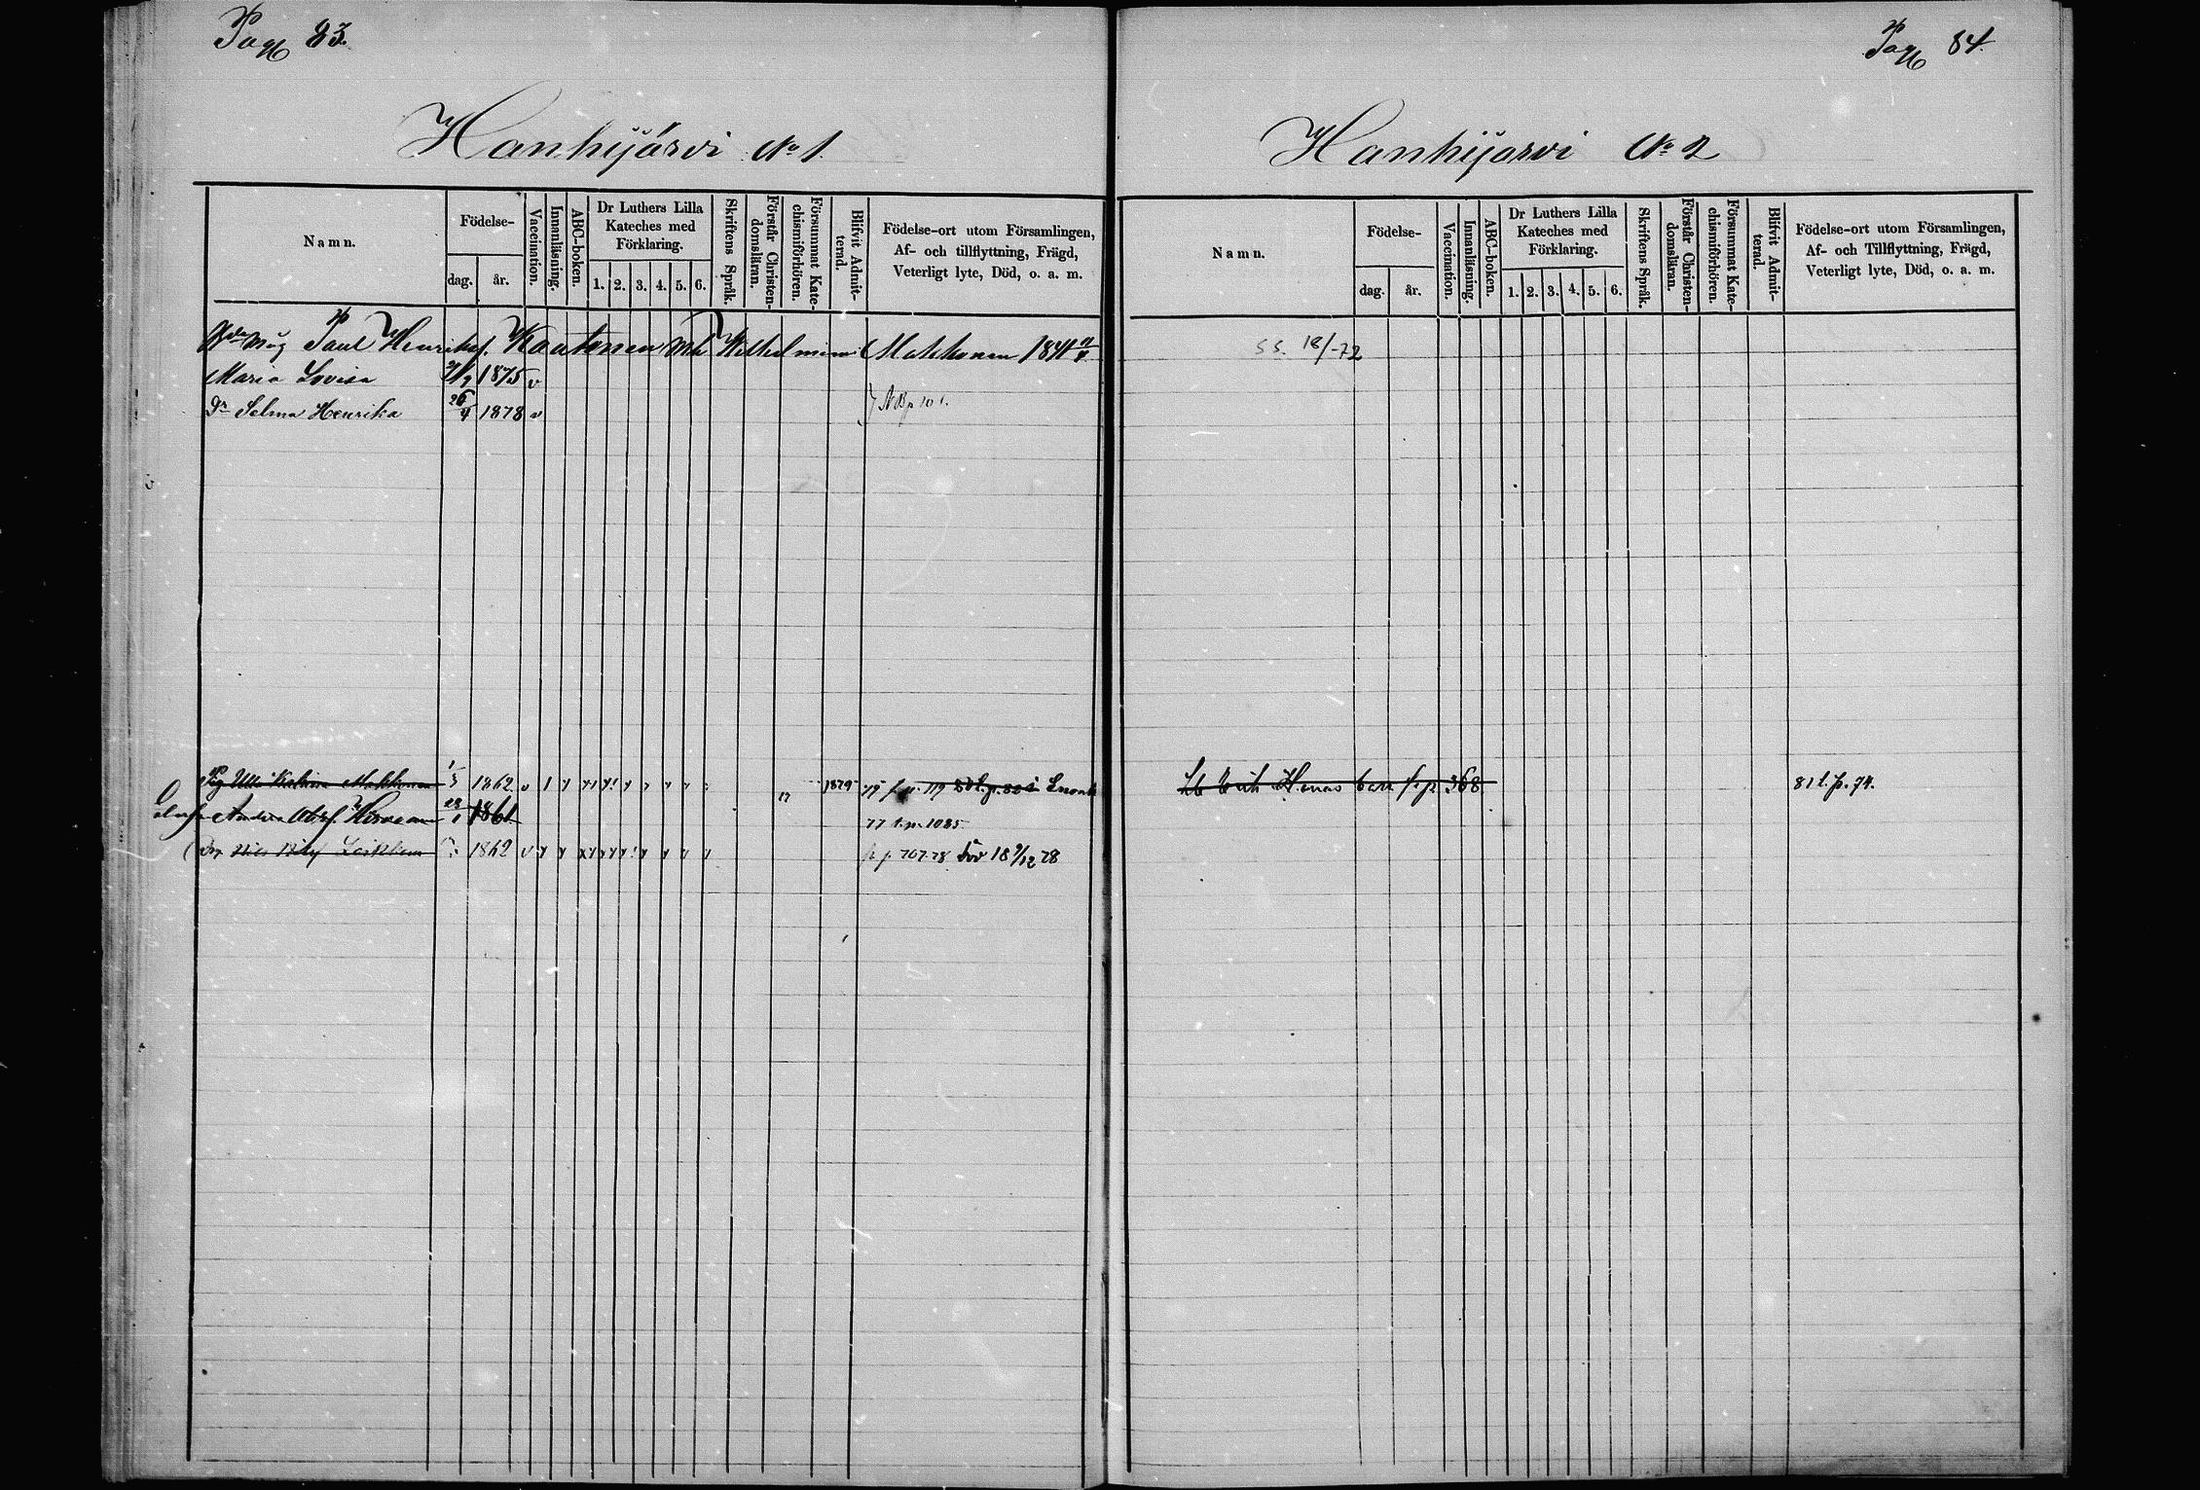 Pag 83.
Hanhijärvi No 1.
Namn.
Födelse-
dag.
år.
Vaccination.
Innanläsning.
ABC-boken.
Dr Luthers Lilla
Kateches med
Förklaring.
1. 2. 3. 4. 5. 6.
Skriftens Språk.
Förstår Christen-
domsläran.
Försummat Kate-
chismiförhören.
Blifvit Admit-
terad.
Födelse-ort utom Församlingen,
Af- och tillflyttning, Frägd,
Veterligt lyte, Död, o. a. m.
Paul Henriksf. Kautonen Wilhelmina Makkonen 1841
Maria Lovisa 1875 v
Dr Selma Henrika 26/4 1878 v
Pig Ulla Katrina Makkonen 1862 v 1879
Anders Abrf. Hirvonen 28/1 1861 77 t. p. 1085
1862 v p. 707. 78 Död 18 9/12 78
Pag 84.
Hanhijärvi No 2
Namn.
Födelse-
dag.
år.
Vaccination.
Innanläsning.
ABC-boken.
Dr Luthers Lilla
Kateches med
Förklaring.
1. 2. 3. 4. 5. 6.
Skriftens Språk.
Förstår Christen-
domsläran.
Försummat Kate-
chismiförhören.
Blifvit Admit-
terad.
Födelse-ort utom Församlingen,
Af- och Tillflyttning, Frägd,
Veterligt lyte, Död, o. a. m.
S.S. 18/-72
barn fr p. 368 81 t. p. 74.